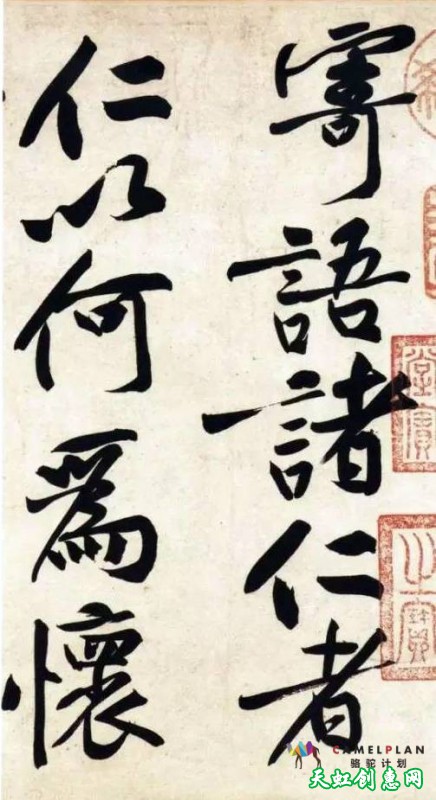 寄語諸仁者
仁以何爲懷
CAMELPLAN
骆驼计划
天虹创惠网